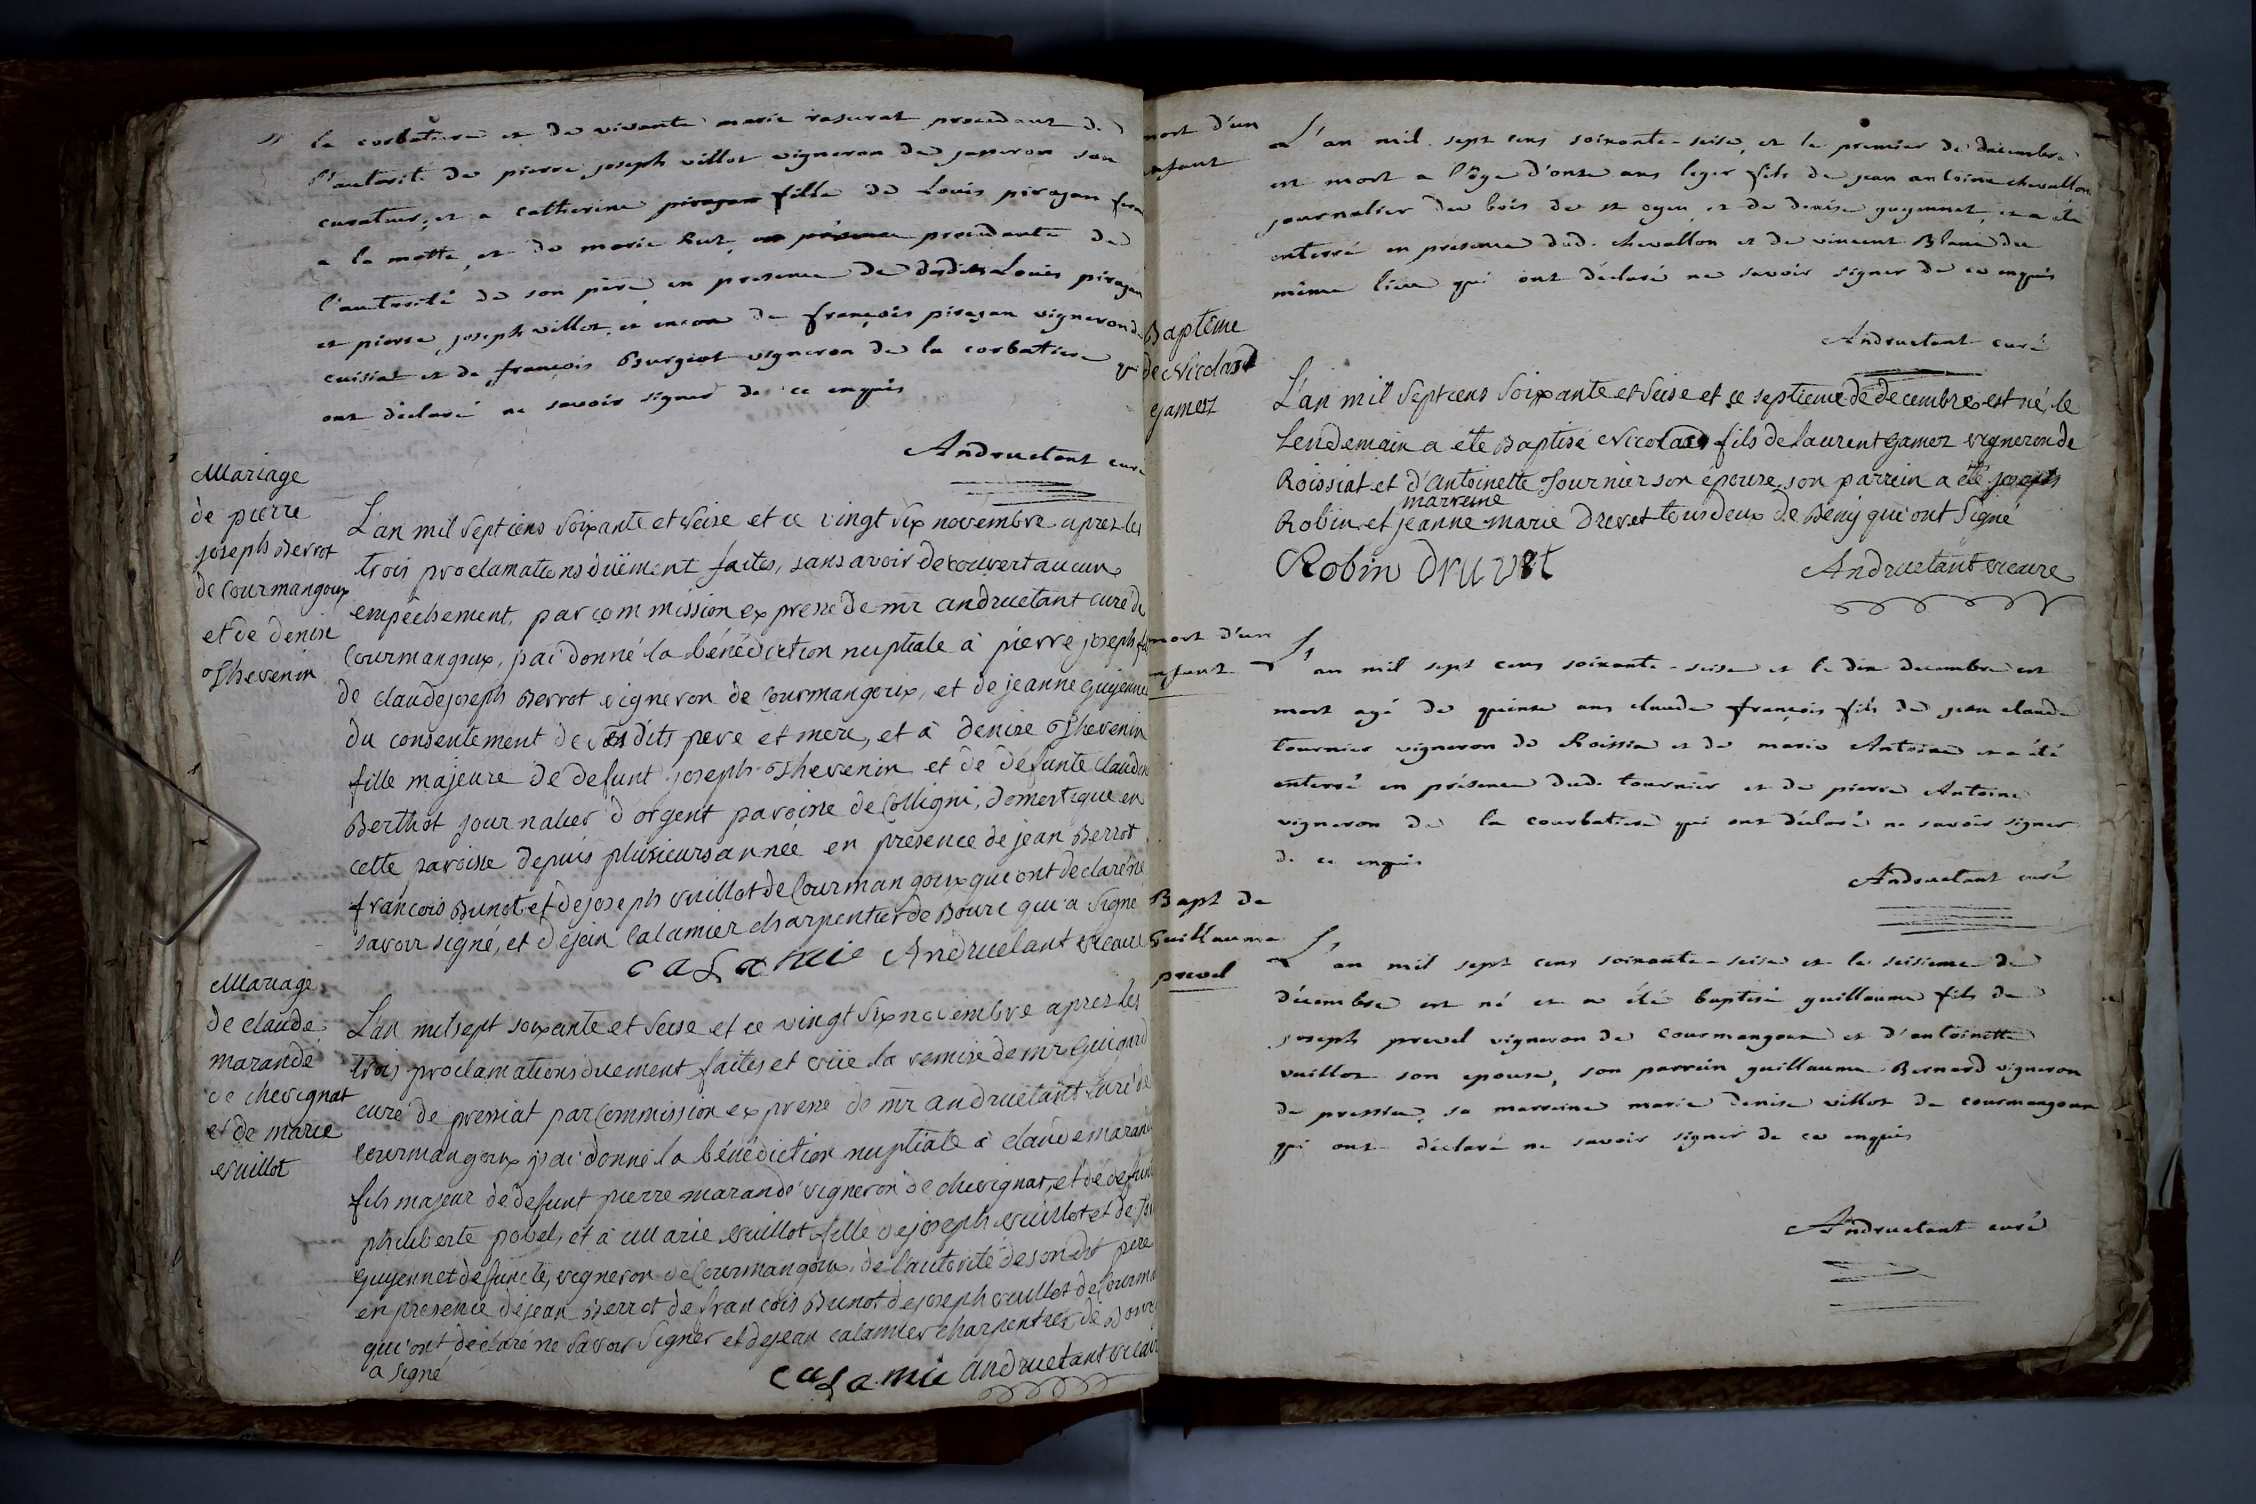 la corbatiere et de vivante marie rasurat procedant de
l'autorité de pierre joseph villot vigneron de jasseron son
curateur, et a catherine piragan fille de Louis piragan
a la motte, et de marie procedante de
l'autorité de son père en presence de desdits Louis piragan
et pierre joseph villot, et encore de françois piragan vigneron de
cuisiat et de françois Bourgeot vigneron de la corbatiere
ont déclaré ne savoir signer de ce enquis
Andruetant curé
Mariage
de pierre
joseph Berrot
de Courmangoux
et de denise
Thevenin
L'an mil Septcens Soixante et Seise et ce vingt six novembre aprez les
trois proclamations düement faites, sans avoir decouvert aucun
empêchement, par commission expresse de mr andruetant curé de
Courmangoux, j'ai donné la bénédiction nuptiale à pierre joseph fils
de claude joseph Berrot vigneron de Courmangoux, et de jeanne Guyennet
du consentement de ses dits pere et mere, et à denise Thevenin
fille majeure de defunt joseph Thevenin et de defunte claudine
Berthot journalier d'orgent paroisse de Colligni, domestique en
cette paroisse depuis plusieurs année en presence de jean Berrot
francois Bunot et de joseph vuillot de Courmangoux qui ont declaré ne
savoir signé, et de jean Calamier charpentier de Bourc qui a signé
caLamie Andruetant vicaire
Mariage
de claude
marandé
de chevignat
et de marie
vuillot
L'an mil sept soixante et seise et ce vingt six novembre aprez les
trois proclamations duement faites et vüe la remise de mr Guigard
curé de pressiat par Commission expresse de mr andruetant Curé de
Courmangoux j'ai donné la bénédiction nuptiale à claude marandé
fils majeur de defunt pierre marandé vigneron de chevignat, et de defunte
philiberte pobel, et à Marie vuillot fille de joseph vuillot et de
Guyennet defuncte, vigneron de Courmangoux, de l'autorité de son dit pere
en presence de jean Berrot de francois Bunot de joseph vuillot de Courma
qui ont déclaré ne savoir signer et de jean calamier charpentier de Bourc
a signé
caLa.mie andruetant vicaire
mort d'un
enfant
L'an mil sept cens soixante-seise, et le premier de décembre
est mort a l'age d'onze ans leger fils de jean antoine chevallon
journalier du bois de st oyen, et de denise guyennet, et a été
enterré en présence dud. chevallon et de vincent Blanc du
même lieu qui ont déclaré ne savoir signer de ce enquis
Andruetant curé
Baptême
de Nicolas
Gamez
L'an mil Septcens Soixante et Seise et ce septieme de decembre est né, le
Lendemain a été Baptisé Nicolas fils de laurent Gamez vigneron de
Roissiat et d'Antoinette Tournier son épouse, son parrein a été joseph
marreine
Robin et jeanne marie Drevet tous deux de Beny qui ont Signé
Robin Druvet
Andruetant vicaire
mort d'un
enfant
L'an mil sept cens soixante-seise et le dix decembre est
mort agé de quinze ans claude françois fils de jean claude
tournier vigneron de Roissia et de marie Antoine et a été
enterré en présence dud. tournier et de pierre Antoine
vigneron de la courbatiere qui ont déclaré ne savoir signer
de ce enquis
Andruetant curé
Bapt de
Guillaume
prevel
L'an mil sept cens soixante-seise et le seisieme de
décembre est né et a été baptisé guillaume fils de
joseph prevel vigneron de Courmangoux et d'antoinette
vuillot son epouse, son parrein guillaume Bernard vigneron
de pressia, sa marreine marie denise villot de courmangoux
qui ont déclaré ne savoir signer de ce enquis
Andruetant curé